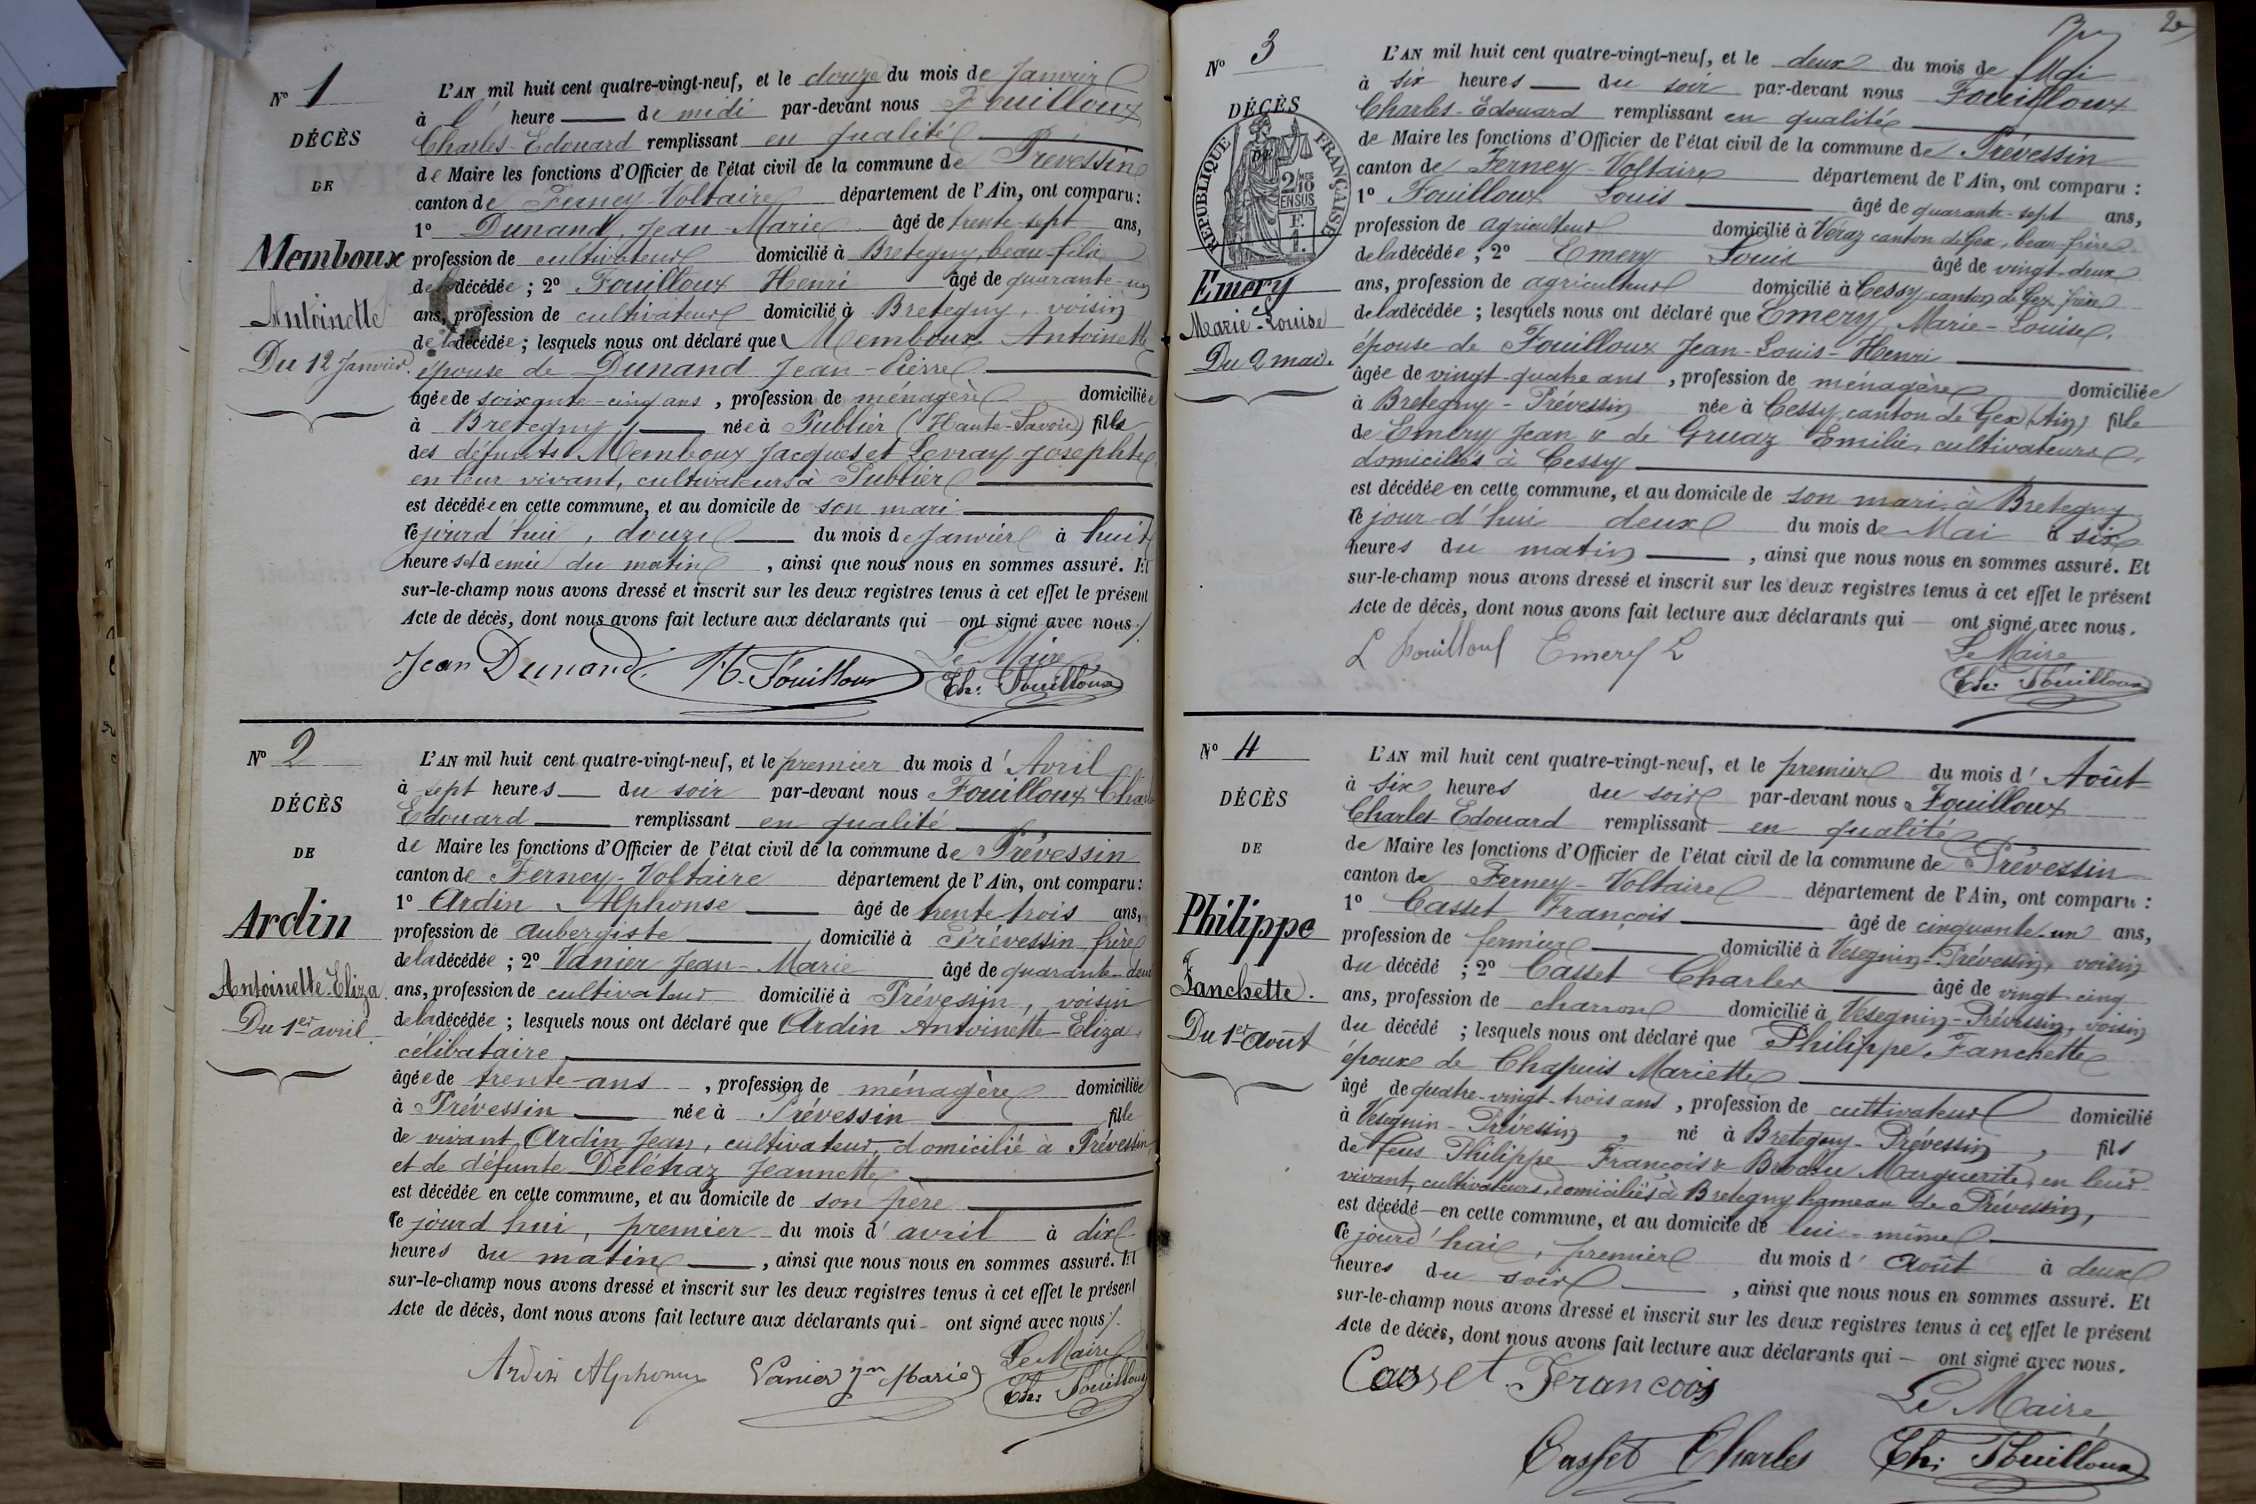 N° 1
DÉCÈS
DE
Memboux
Antoinette
Du 12 Janvier.
L'AN mil huit cent quatre-vingt-neuf, et le douze du mois de Janvier
à l' heure de midi par-devant nous Fouilloux
Charles-Edouard remplissant en qualité
de Maire les fonctions d'Officier de l'état civil de la commune de Prévessin
canton de Ferney-Voltaire département de l'Ain, ont comparu :
1° Dunand, Jean-Marie âgé de trente-sept ans,
profession de cultivateur domicilié à Bretegny, beau-fils
de la décédée ; 2° Fouilloux Henri âgé de quarante-un
ans, profession de cultivateur domicilié à Bretegny, voisin
de la décédée ; lesquels nous ont déclaré que Memboux Antoinette
épouse de Dunand Jean-Pierre
âgée de soixante-cinq ans, profession de ménagère domiciliée
à Bretegny, née à Publier (Haute-Savoie) fille
des défunts Memboux Jacques et Levray Josephte
en leur vivant, cultivateurs à Publier
est décédée en cette commune, et au domicile de son mari
ce jourd'hui, douze du mois de Janvier à huit
heures et demie du matin, ainsi que nous nous en sommes assuré. Et
sur-le-champ nous avons dressé et inscrit sur les deux registres tenus à cet effet le présent
Acte de décès, dont nous avons fait lecture aux déclarants qui ont signé avec nous.
Jean Dunand H. Fouilloux Le Maire
Ch: Fouilloux
N° 2
DÉCÈS
DE
Ardin
Antoinette-Eliza.
Du 1er avril
L'AN mil huit cent quatre-vingt-neuf, et le premier du mois d'Avril
à sept heures du soir par-devant nous Fouilloux Charles
Edouard remplissant en qualité
de Maire les fonctions d'Officier de l'état civil de la commune de Prévessin
canton de Ferney-Voltaire département de l'Ain, ont comparu :
1° Ardin Alphonse âgé de trente trois ans,
profession de aubergiste domicilié à Prévessin frère
de la décédée ; 2° Vanier Jean-Marie âgé de quarante-deux
ans, profession de cultivateur domicilié à Prévessin, voisin
de la décédée ; lesquels nous ont déclaré que Ardin Antoinette-Eliza,
célibataire
âgée de trente-ans, profession de ménagère domiciliée
à Prévessin née à Prévessin fille
de vivant, Ardin Jean, cultivateur domicilié à Prévessin
et de défunte Delétraz Jeannette
est décédée en cette commune, et au domicile de son père
ce jourd'hui, premier du mois d'avril à dix
heures du matin, ainsi que nous nous en sommes assuré. Et
sur-le-champ nous avons dressé et inscrit sur les deux registres tenus à cet effet le présent
Acte de décès, dont nous avons fait lecture aux déclarants qui ont signé avec nous.
Ardin Alphonse Vanier Jn Marie Le Maire
Ch: Fouilloux
2
N° 3
DÉCÈS
DE
RÉPUBLIQUE FRANÇAISE
2/10 MES
EN SUS
F.
1.
Emery
Marie-Louise
Du 2 mai.
L'AN mil huit cent quatre-vingt-neuf, et le deux du mois de Mai
à six heures du soir par-devant nous Fouilloux
Charles-Edouard remplissant en qualité
de Maire les fonctions d'Officier de l'état civil de la commune de Prévessin
canton de Ferney-Voltaire département de l'Ain, ont comparu :
1° Fouilloux Louis âgé de quarante-sept ans,
profession de agriculteur domicilié à Veraz canton de Gex, beau-frère
de la décédée ; 2° Emery Louis âgé de vingt-deux
ans, profession de agriculteur domicilié à Cessy canton de Gex frère
de la décédée ; lesquels nous ont déclaré que Emery Marie-Louise,
épouse de Fouilloux Jean-Louis-Henri
âgée de vingt-quatre ans, profession de ménagère domiciliée
à Bretegny-Prévessin née à Cessy canton de Gex (Ain) fille
de Emery Jean & de Gruaz Emilie, cultivateurs
domiciliés à Cessy
est décédée en cette commune, et au domicile de son mari, à Bretegny
ce jour d'hui deux du mois de Mai à six
heures du matin, ainsi que nous nous en sommes assuré. Et
sur-le-champ nous avons dressé et inscrit sur les deux registres tenus à cet effet le présent
Acte de décès, dont nous avons fait lecture aux déclarants qui ont signé avec nous.
L Fouilloux Emery L Le Maire
Ch: Fouilloux
N° 4
DÉCÈS
DE
Philippe
Fanchette.
Du 1er Août
L'AN mil huit cent quatre-vingt-neuf, et le premier du mois d'Août
à six heures du soir par-devant nous Fouilloux
Charles Edouard remplissant en qualité
de Maire les fonctions d'Officier de l'état civil de la commune de Prévessin
canton de Ferney-Voltaire département de l'Ain, ont comparu :
1° Casset François âgé de cinquante-un ans,
profession de fermier domicilié à Vesegnin-Prévessin, voisin
du décédé ; 2° Casset Charles âgé de vingt-cinq
ans, profession de charron domicilié à Vesegnin-Prévessin, voisin
du décédé ; lesquels nous ont déclaré que Philippe Fanchette
époux de Chapuis Mariette
âgé de quatre-vingt-trois ans, profession de cultivateur domicilié
à Vesegnin-Prévessin, né à Bretegny-Prévessin, fils
de feus Philippe François & Brochu Marguerite, en leur
vivant, cultivateurs domiciliés à Bretegny hameau de Prévessin,
est décédé en cette commune, et au domicile de lui-même
ce jourd'hui, premier du mois d'Août à deux
heures du soir, ainsi que nous nous en sommes assuré. Et
sur-le-champ nous avons dressé et inscrit sur les deux registres tenus à cet effet le présent
Acte de décès, dont nous avons fait lecture aux déclarants qui ont signé avec nous.
Casset Francois Le Maire
Casset Charles Ch: Fouilloux